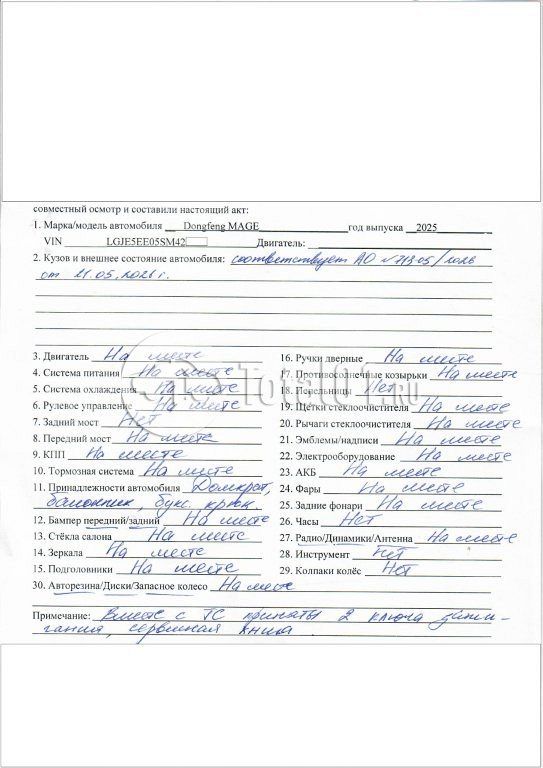 совместный осмотр и составили настоящий акт:
1. Марка/модель автомобиля Dongfeng MAGE год выпуска 2025
VIN LGJE5EE05SM42 Двигатель:
2. Кузов и внешнее состояние автомобиля: соответствует АО №
от 21.05.2026 г.
3. Двигатель На месте
4. Система питания На месте
5. Система охлаждения На месте
6. Рулевое управление На месте
7. Задний мост Нет
8. Передний мост На месте
9. КПП На месте
10. Тормозная система На месте
11. Принадлежности автомобиля Домкрат,
балонник, букс. крюк.
12. Бампер передний/задний На месте
13. Стёкла салона На месте
14. Зеркала На месте
15. Подголовники На месте
16. Ручки дверные На месте
17. Противосолнечные козырьки На месте
18. Пепельницы Нет
19. Щетки стеклоочистителя На месте
20. Рычаги стеклоочистителя На месте
21. Эмблемы/надписи На месте
22. Электрооборудование На месте
23. АКБ На месте
24. Фары На месте
25. Задние фонари На месте
26. Часы Нет
27. Радио/Динамики/Антенна На месте
28. Инструмент Нет
29. Колпаки колёс Нет
30. Авторезина/Диски/Запасное колесо На месте
Примечание: Вместе с ТС приняты 2 ключа зажи-
гания, сервисная книга
TOTAL01.RU